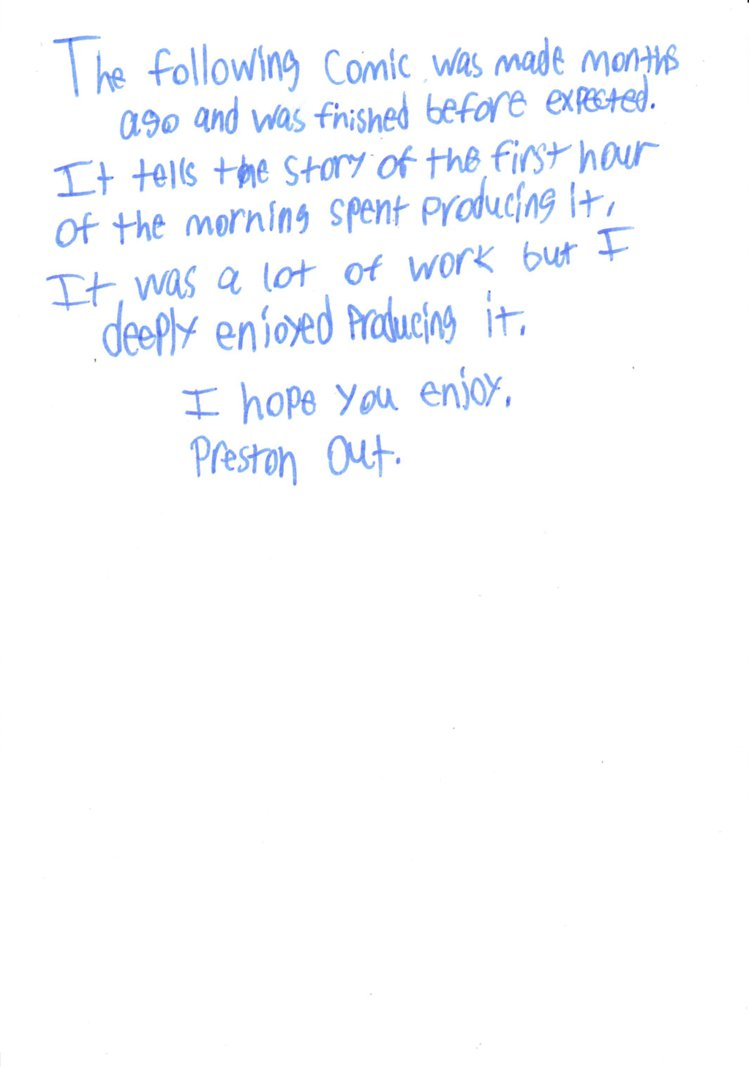 The following Comic was made months
ago and was finished before expected.
It tells the story of the first hour
of the morning spent producing it,
It was a lot of work but I
deeply enjoyed Producing it.
I hope you enjoy.
Preston Out.